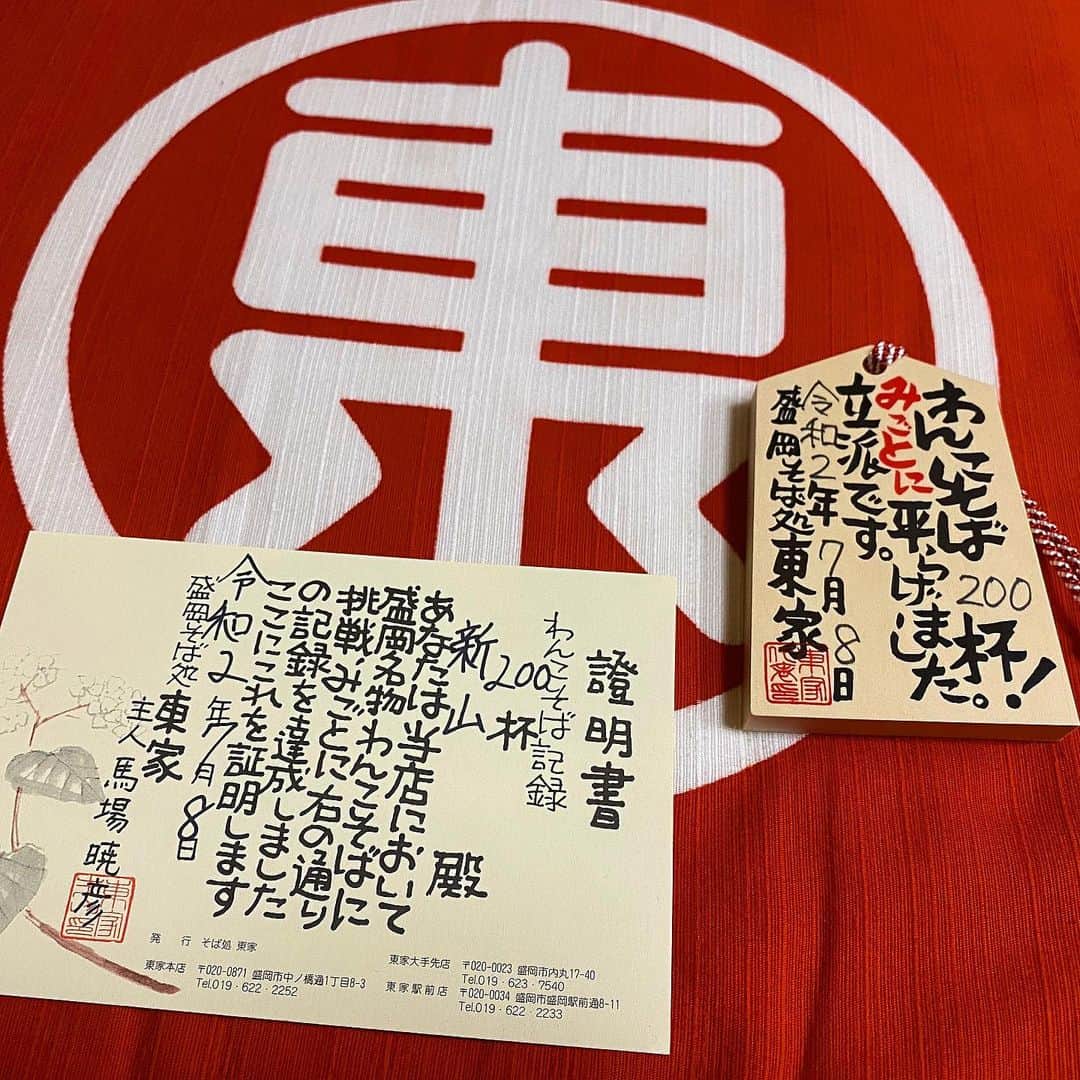 東
わんこそば200杯!
みごとに平らげました。
立派です。
令和2年7月8日
盛岡そば処東家
證明書
わんこそば記録
200杯
新山 殿
あなたは当店において
盛岡名物わんこそばに
挑戦、みごとに右の通り
の記録を達成しました
ここにこれを証明します
令和2年7月8日
盛岡そば処 東家
主人 馬場暁彦
発 行 そば処 東家
東家本店 〒020-0871 盛岡市中ノ橋通1丁目8-3
Tel.019・622・2252
東家大手先店 〒020-0023 盛岡市内丸17-40
Tel.019・623・7540
東家駅前店 〒020-0034 盛岡市盛岡駅前通8-11
Tel.019・622・2233